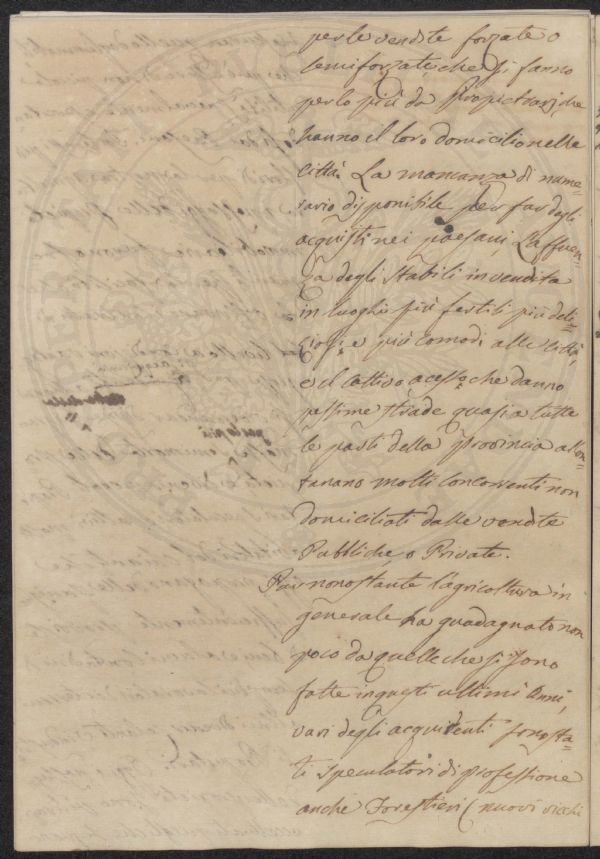 per le vendite forzate o
semiforzate che si fanno
per lo più da Proprietarj che
hanno il loro domicilio nelle
città. La mancanza di nume=
rario disponibile per far degli
acquisti nei paesani, L'affluen=
za degli Stabili in vendita
in luoghi più fertili più deli=
ziosi, e più comodi alle città,
e il cattivo acesso che danno
pessime strade quasi a tutte
per lo più
le parti della Provincia allon=
tanano molti Concorrenti non
domiciliati dalle vendite
Pubbliche, o Private.
Pur nonostante l'agricoltura in
generale ha guadagnato non
poco da quelle che si sono
fatte in questi ultimi Anni,
vari degli acquirenti sono sta=
ti speculatori di professione
anche Forestieri (nuovi ricchi